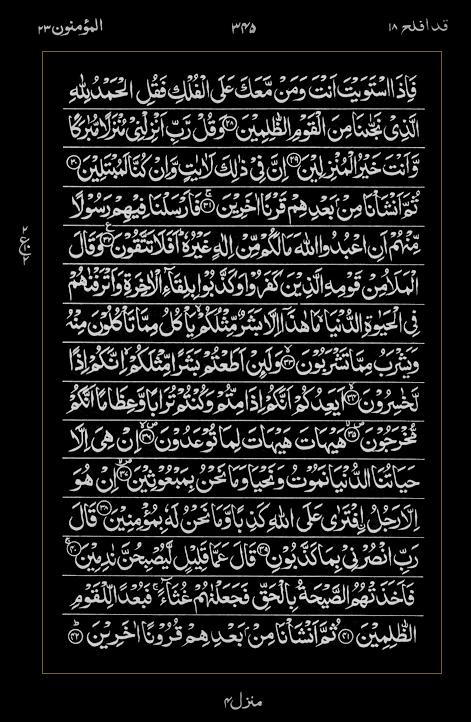 قد افلح ١٨ ٣٤٥ المؤمنون ٢٣
فَاِذَا اسْتَوَيْتَ اَنْتَ وَمَنْ مَّعَكَ عَلَى الْفُلْكِ فَقُلِ الْحَمْدُ لِلّٰهِ
الَّذِيْ نَجّٰىنَا مِنَ الْقَوْمِ الظّٰلِمِيْنَ ﴿٢٨﴾ وَقُلْ رَّبِّ اَنْزِلْنِيْ مُنْزَلًا مُّبٰرَكًا
وَّاَنْتَ خَيْرُ الْمُنْزِلِيْنَ ﴿٢٩﴾ اِنَّ فِيْ ذٰلِكَ لَاٰيٰتٍ وَّاِنْ كُنَّا لَمُبْتَلِيْنَ ﴿٣٠﴾
ثُمَّ اَنْشَاْنَا مِنْۢ بَعْدِهِمْ قَرْنًا اٰخَرِيْنَ ﴿٣١﴾ فَاَرْسَلْنَا فِيْهِمْ رَسُوْلًا
مِّنْهُمْ اَنِ اعْبُدُوا اللّٰهَ مَا لَكُمْ مِّنْ اِلٰهٍ غَيْرُهٗ ؕ اَفَلَا تَتَّقُوْنَ ﴿٣٢﴾ وَقَالَ
الْمَلَاُ مِنْ قَوْمِهِ الَّذِيْنَ كَفَرُوْا وَكَذَّبُوْا بِلِقَآءِ الْاٰخِرَةِ وَاَتْرَفْنٰهُمْ
فِي الْحَيٰوةِ الدُّنْيَا ۙ مَا هٰذَاۤ اِلَّا بَشَرٌ مِّثْلُكُمْ ۙ يَاْكُلُ مِمَّا تَاْكُلُوْنَ مِنْهُ
وَيَشْرَبُ مِمَّا تَشْرَبُوْنَ ﴿٣٣﴾ وَلَئِنْ اَطَعْتُمْ بَشَرًا مِّثْلَكُمْ اِنَّكُمْ اِذًا
لَّخٰسِرُوْنَ ﴿٣٤﴾ اَيَعِدُكُمْ اَنَّكُمْ اِذَا مِتُّمْ وَكُنْتُمْ تُرَابًا وَّعِظَامًا اَنَّكُمْ
مُّخْرَجُوْنَ ﴿٣٥﴾ هَيْهَاتَ هَيْهَاتَ لِمَا تُوْعَدُوْنَ ﴿٣٦﴾ اِنْ هِيَ اِلَّا
حَيَاتُنَا الدُّنْيَا نَمُوْتُ وَنَحْيَا وَمَا نَحْنُ بِمَبْعُوْثِيْنَ ﴿٣٧﴾ اِنْ هُوَ
اِلَّا رَجُلُ اِۨفْتَرٰى عَلَى اللّٰهِ كَذِبًا وَّمَا نَحْنُ لَهٗ بِمُؤْمِنِيْنَ ﴿٣٨﴾ قَالَ
رَبِّ انْصُرْنِيْ بِمَا كَذَّبُوْنِ ﴿٣٩﴾ قَالَ عَمَّا قَلِيْلٍ لَّيُصْبِحُنَّ نٰدِمِيْنَ ﴿٤٠﴾
فَاَخَذَتْهُمُ الصَّيْحَةُ بِالْحَقِّ فَجَعَلْنٰهُمْ غُثَآءً ۚ فَبُعْدًا لِّلْقَوْمِ
الظّٰلِمِيْنَ ﴿٤١﴾ ثُمَّ اَنْشَاْنَا مِنْۢ بَعْدِهِمْ قُرُوْنًا اٰخَرِيْنَ ﴿٤٢﴾
منزل ٤